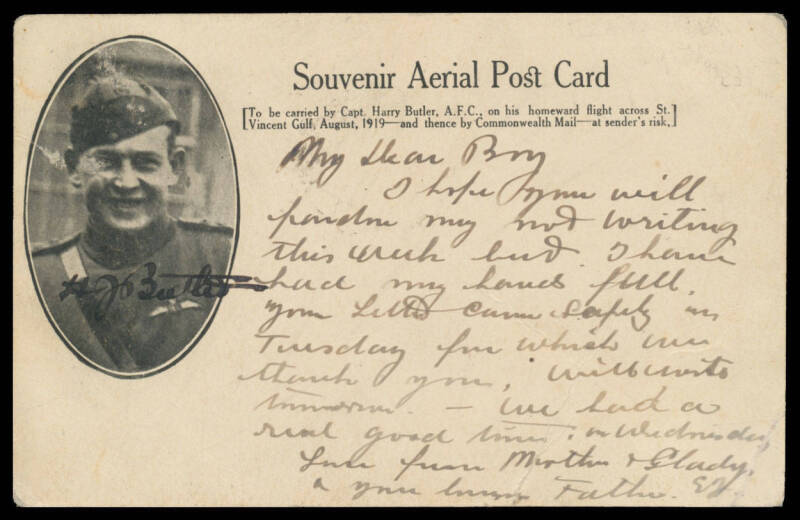 Souvenir Aerial Post Card
[To be carried by Capt. Harry Butler, A.F.C., on his homeward flight across St.
Vincent Gulf, August, 1919—and thence by Commonwealth Mail—at sender's risk.]
My Dear Boy
I hope you will
pardon my not writing
this week but I have
had my hands full.
H J Butler
your Letter came safely on
Tuesday for which we
thank you, will write
tomorrow. — We had a
real good time on Wednesday
Love from Mother & Gladys
& your loving Father.